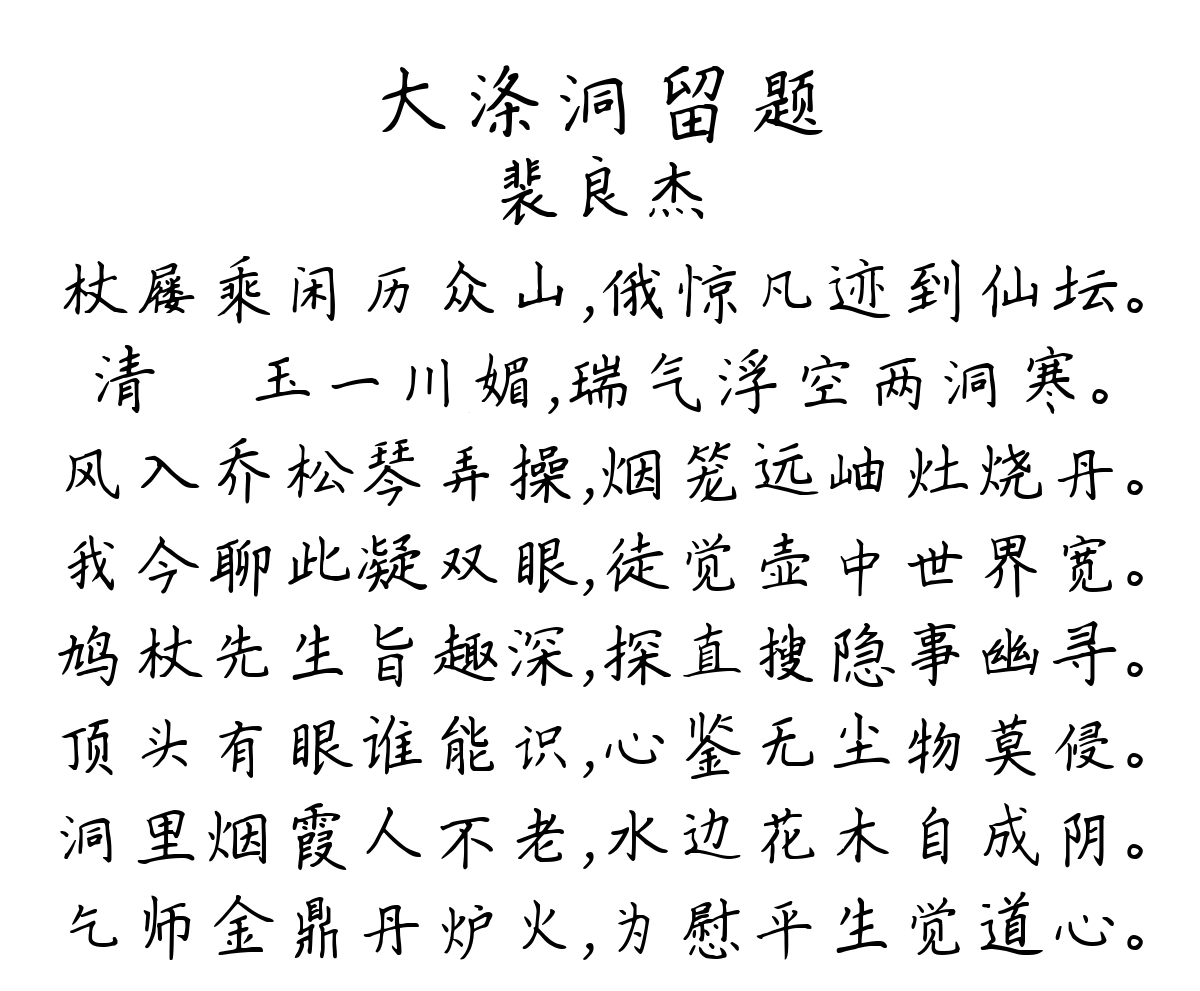 大涤洞留题
裴良杰
杖屦乘闲历众山,俄惊凡迹到仙坛。
清 玉一川媚,瑞气浮空两洞寒。
风入乔松琴弄操,烟笼远岫灶烧丹。
我今聊此凝双眼,徒觉壶中世界宽。
鸠杖先生旨趣深,探直搜隐事幽寻。
顶头有眼谁能识,心鉴无尘物莫侵。
洞里烟霞人不老,水边花木自成阴。
乞师金鼎丹炉火,为慰平生觉道心。